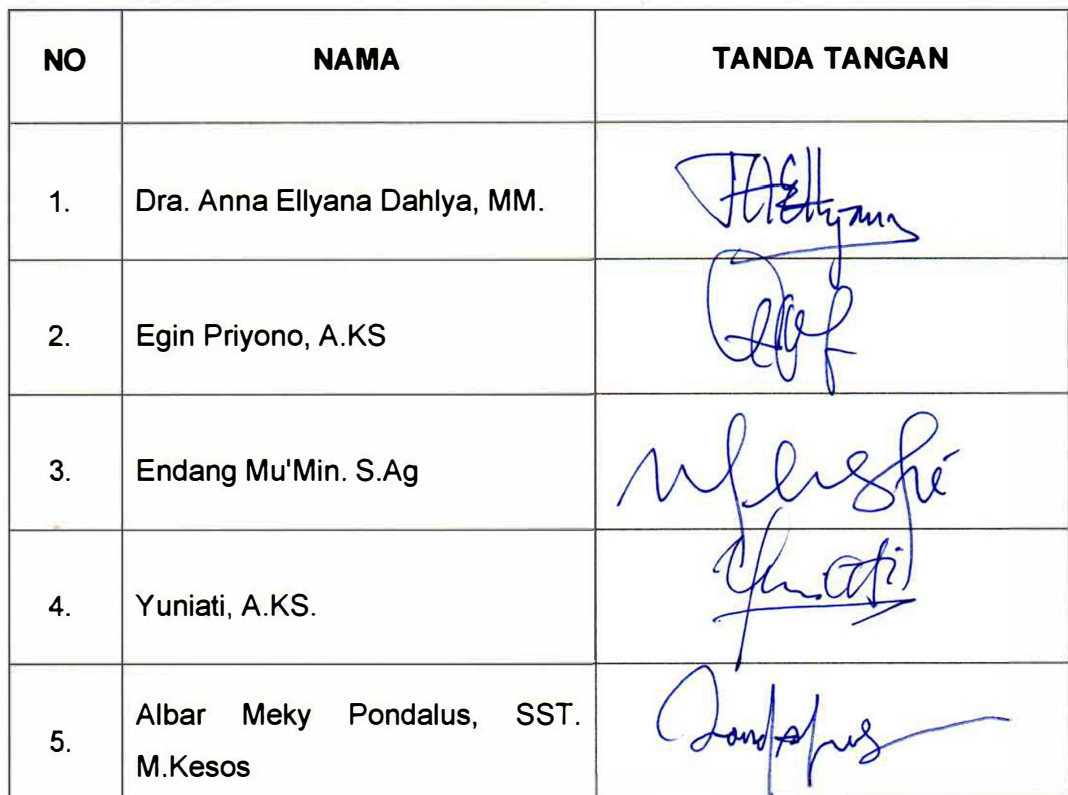 NO NAMA TANDA TANGAN
1. Dra. Anna Ellyana Dahlya, MM.
2. Egin Priyono, A.KS
3. Endang Mu'Min. S.Ag
4. Yuniati, A.KS.
5. Albar Meky Pondalus, SST.
M.Kesos